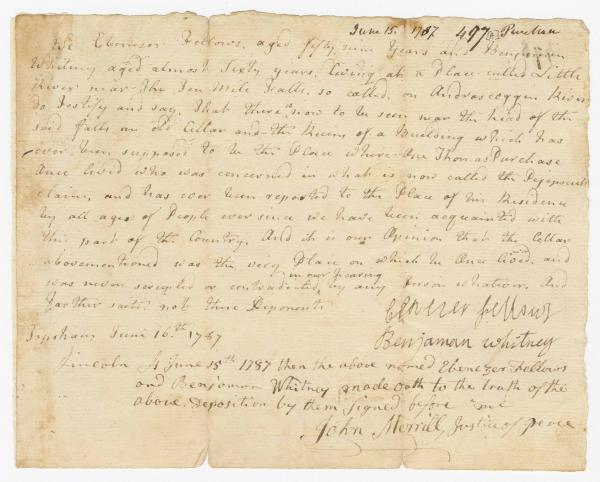 June 15. 1787. 497 (A) Purchase
We Ebenezer Fellows, aged fifty nine Years and Benjamin
Whitney aged almost Sixty years, living at a Place called Little
River near the Ten Mile Falls so called, on Androscoggin River
do Testify and say, That there is now to be seen near the head of the
said falls an old Cellar and the Ruins of a Building which has
ever been supposed to be the Place where One Thomas Purchase
Once lived who was concerned in what is now called the Pejepscutt
claim, and has ever been reported to the Place of his Residence
by all ages of People ever since we have been acquainted with
this part of the Country, And it is our Opinion that the Cellar
abovementioned was the very Place on which he Once lived, and
in our hearing
was never scrupled or contradicted by any Person whatever. And
farther saith not these Deponents
Ebenezer fellows
Topsham June 16.th 1787
Benjaman Whitney
Lincoln ss June 15th 1787 then the above named Ebenezer Fellows
and Benjamon Whitney made oath to the truth of the
above Deposition by them Signed before me
John Merrill, Justice of peace